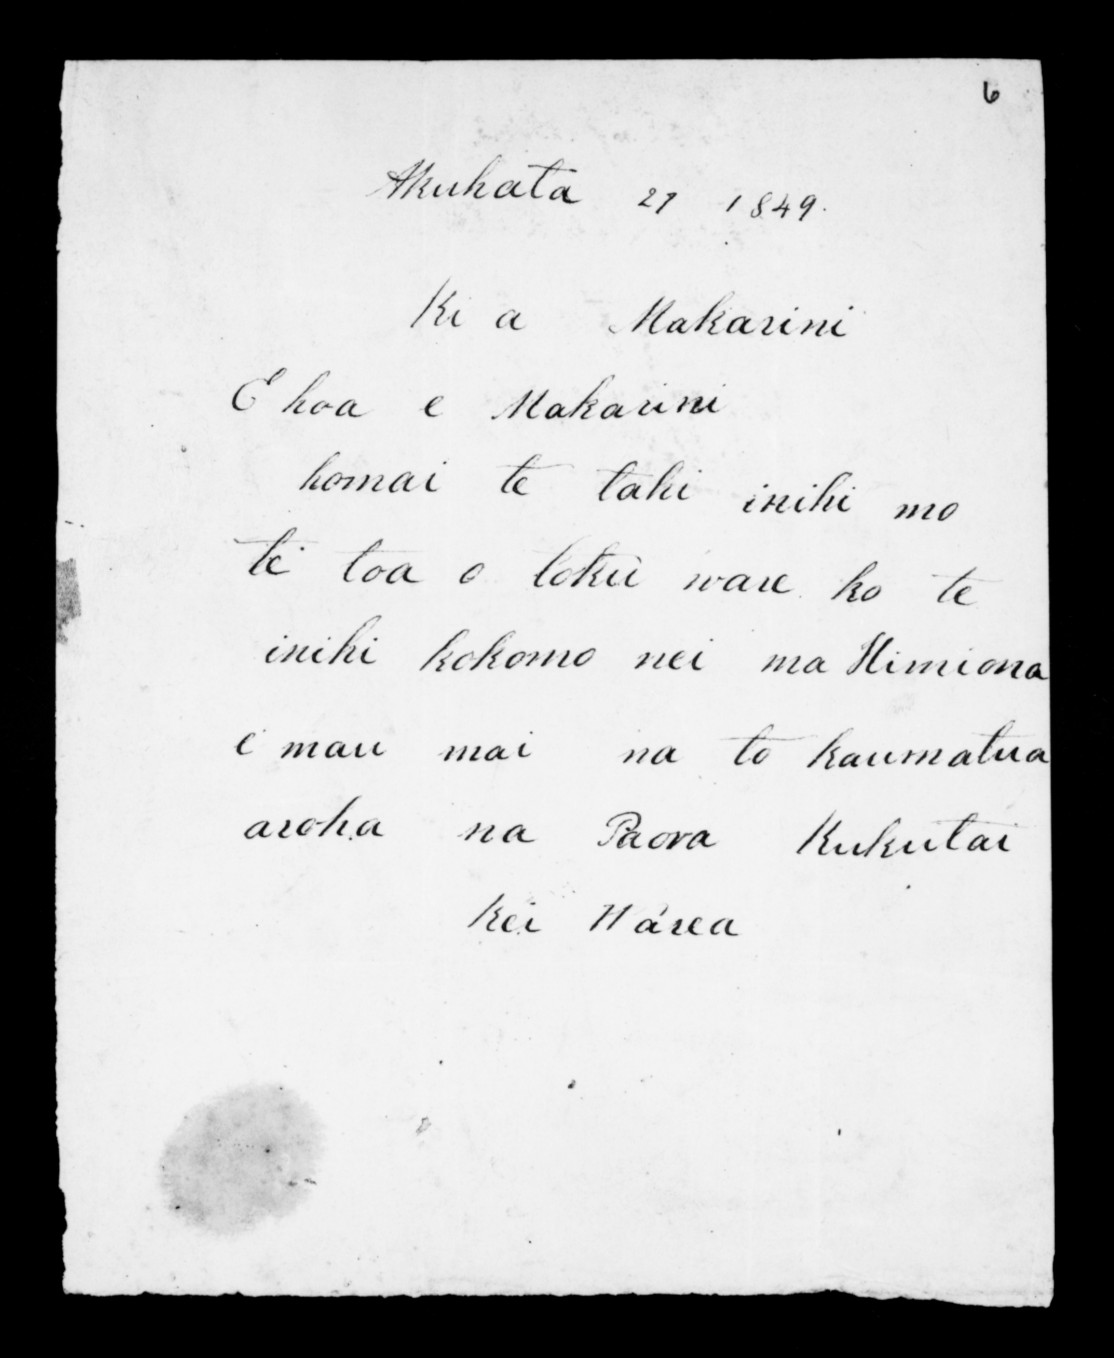 6
Akuhata 27 1849.
Ki a Makarini
E hoa e Makarini
homai te taki inihi mo
te toa o toku ware ko te
inihi kokomo nei ma Himiona
e mau mai na to kaumatua
aroha na Paora Kukutai
kei Harea